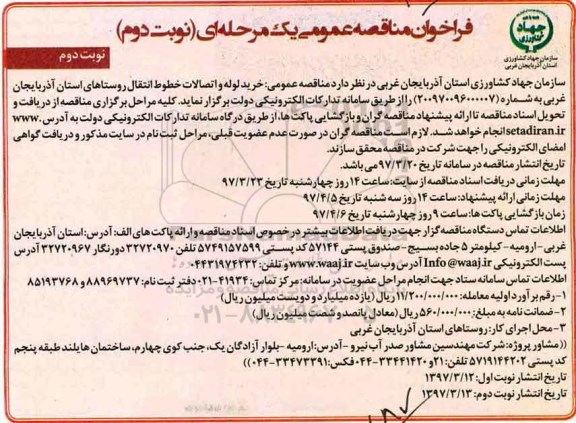 فراخوان مناقصه عمومی یک مرحله‌ای (نوبت دوم)
جهاد کشاورزی
سازمان جهاد کشاورزی
استان آذربایجان غربی
نوبت دوم
سازمان جهاد کشاورزی استان آذربایجان غربی در نظر دارد مناقصه عمومی: خرید لوله و اتصالات خطوط انتقال روستاهای استان آذربایجان
غربی به شماره (۲۰۰۹۷۰۰۹۶۰۰۰۰۰۷) را از طریق سامانه تدارکات الکترونیکی دولت برگزار نماید. کلیه مراحل برگزاری مناقصه از دریافت و
تحویل اسناد مناقصه تا ارائه پیشنهاد مناقصه گران و بازگشایی پاکت‌ها، از طریق درگاه سامانه تدارکات الکترونیکی دولت به آدرس www.
setadiran.ir انجام خواهد شد. لازم است مناقصه گران در صورت عدم عضویت قبلی، مراحل ثبت نام در سایت مذکور و دریافت گواهی
امضای الکترونیکی را جهت شرکت در مناقصه محقق سازند.
تاریخ انتشار مناقصه در سامانه تاریخ ۹۷/۳/۲۰ می باشد.
مهلت زمانی دریافت اسناد مناقصه از سایت: ساعت ۱۴ روز چهارشنبه تاریخ ۹۷/۳/۲۳
مهلت زمانی ارائه پیشنهاد: ساعت ۱۴ روز سه شنبه تاریخ ۹۷/۴/۵
زمان بازگشایی پاکت ها: ساعت ۹ روز چهارشنبه تاریخ ۹۷/۴/۶
اطلاعات تماس دستگاه مناقصه گزار جهت دریافت اطلاعات بیشتر در خصوص اسناد مناقصه و ارائه پاکت های الف: آدرس: استان آذربایجان
غربی-ارومیه-کیلومتر ۵ جاده بسیج-صندوق پستی ۵۷۱۴۴ کد پستی ۵۷۴۹۱۵۷۵۹۹ تلفن ۳۲۷۲۰۹۷۰ دورنگار ۳۲۷۲۰۹۶۷ آدرس
پست الکترونیکی Info @waaj.ir آدرس وب سایت www.waaj.ir و تلفن: ۰۴۴۳۱۹۷۴۲۳۲
اطلاعات تماس سامانه ستاد جهت انجام مراحل عضویت در سامانه: مرکز تماس: ۴۱۹۳۴-۰۲۱ دفتر ثبت نام: ۸۸۹۶۹۷۳۷ و ۸۵۱۹۳۷۶۸
۱-رقم برآورد اولیه معامله: ۱۱/۲۰۰/۰۰۰/۰۰۰ ریال (یازده میلیارد و دویست میلیون ریال)
۲-ضمانت نامه به مبلغ: ۵۶۰/۰۰۰/۰۰۰ ریال (معادل پانصد و شصت میلیون ریال)
۳-محل اجرای کار: روستاهای استان آذربایجان غربی
((مشاور پروژه: شرکت مهندسین مشاور صدر آب نیرو -آدرس: ارومیه-بلوار آزادگان یک، جنب کوی چهارم، ساختمان هایلند طبقه پنجم
کد پستی ۵۷۱۹۱۴۴۲۰۲ تلفن: ۲۱ و ۳۳۴۴۱۴۲۰-۰۴۴ فکس: ۳۳۴۷۳۳۹۱-۰۴۴))
تاریخ انتشار نوبت اول: ۱۳۹۷/۳/۱۲
تاریخ انتشار نوبت دوم: ۱۳۹۷/۳/۱۳